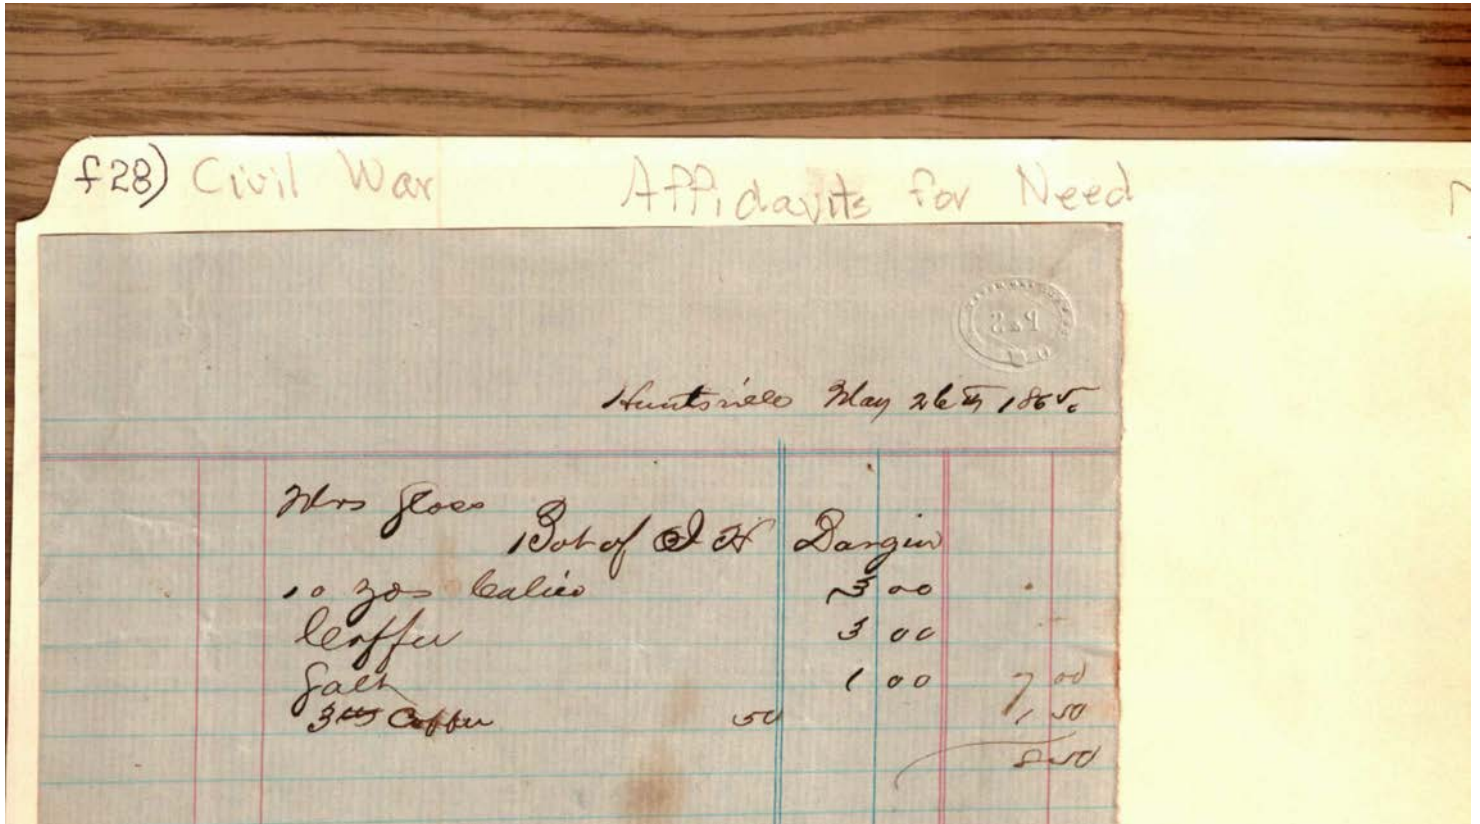 f28) Civil War Affidavits for Need
P&S
Huntsville May 26th 1865.
Mrs
Bot of H
10 yds Calico 3 00
Coffee 3 00
Salt 1 00 7 00
3 lbs Coffee 50 1 50
8 50